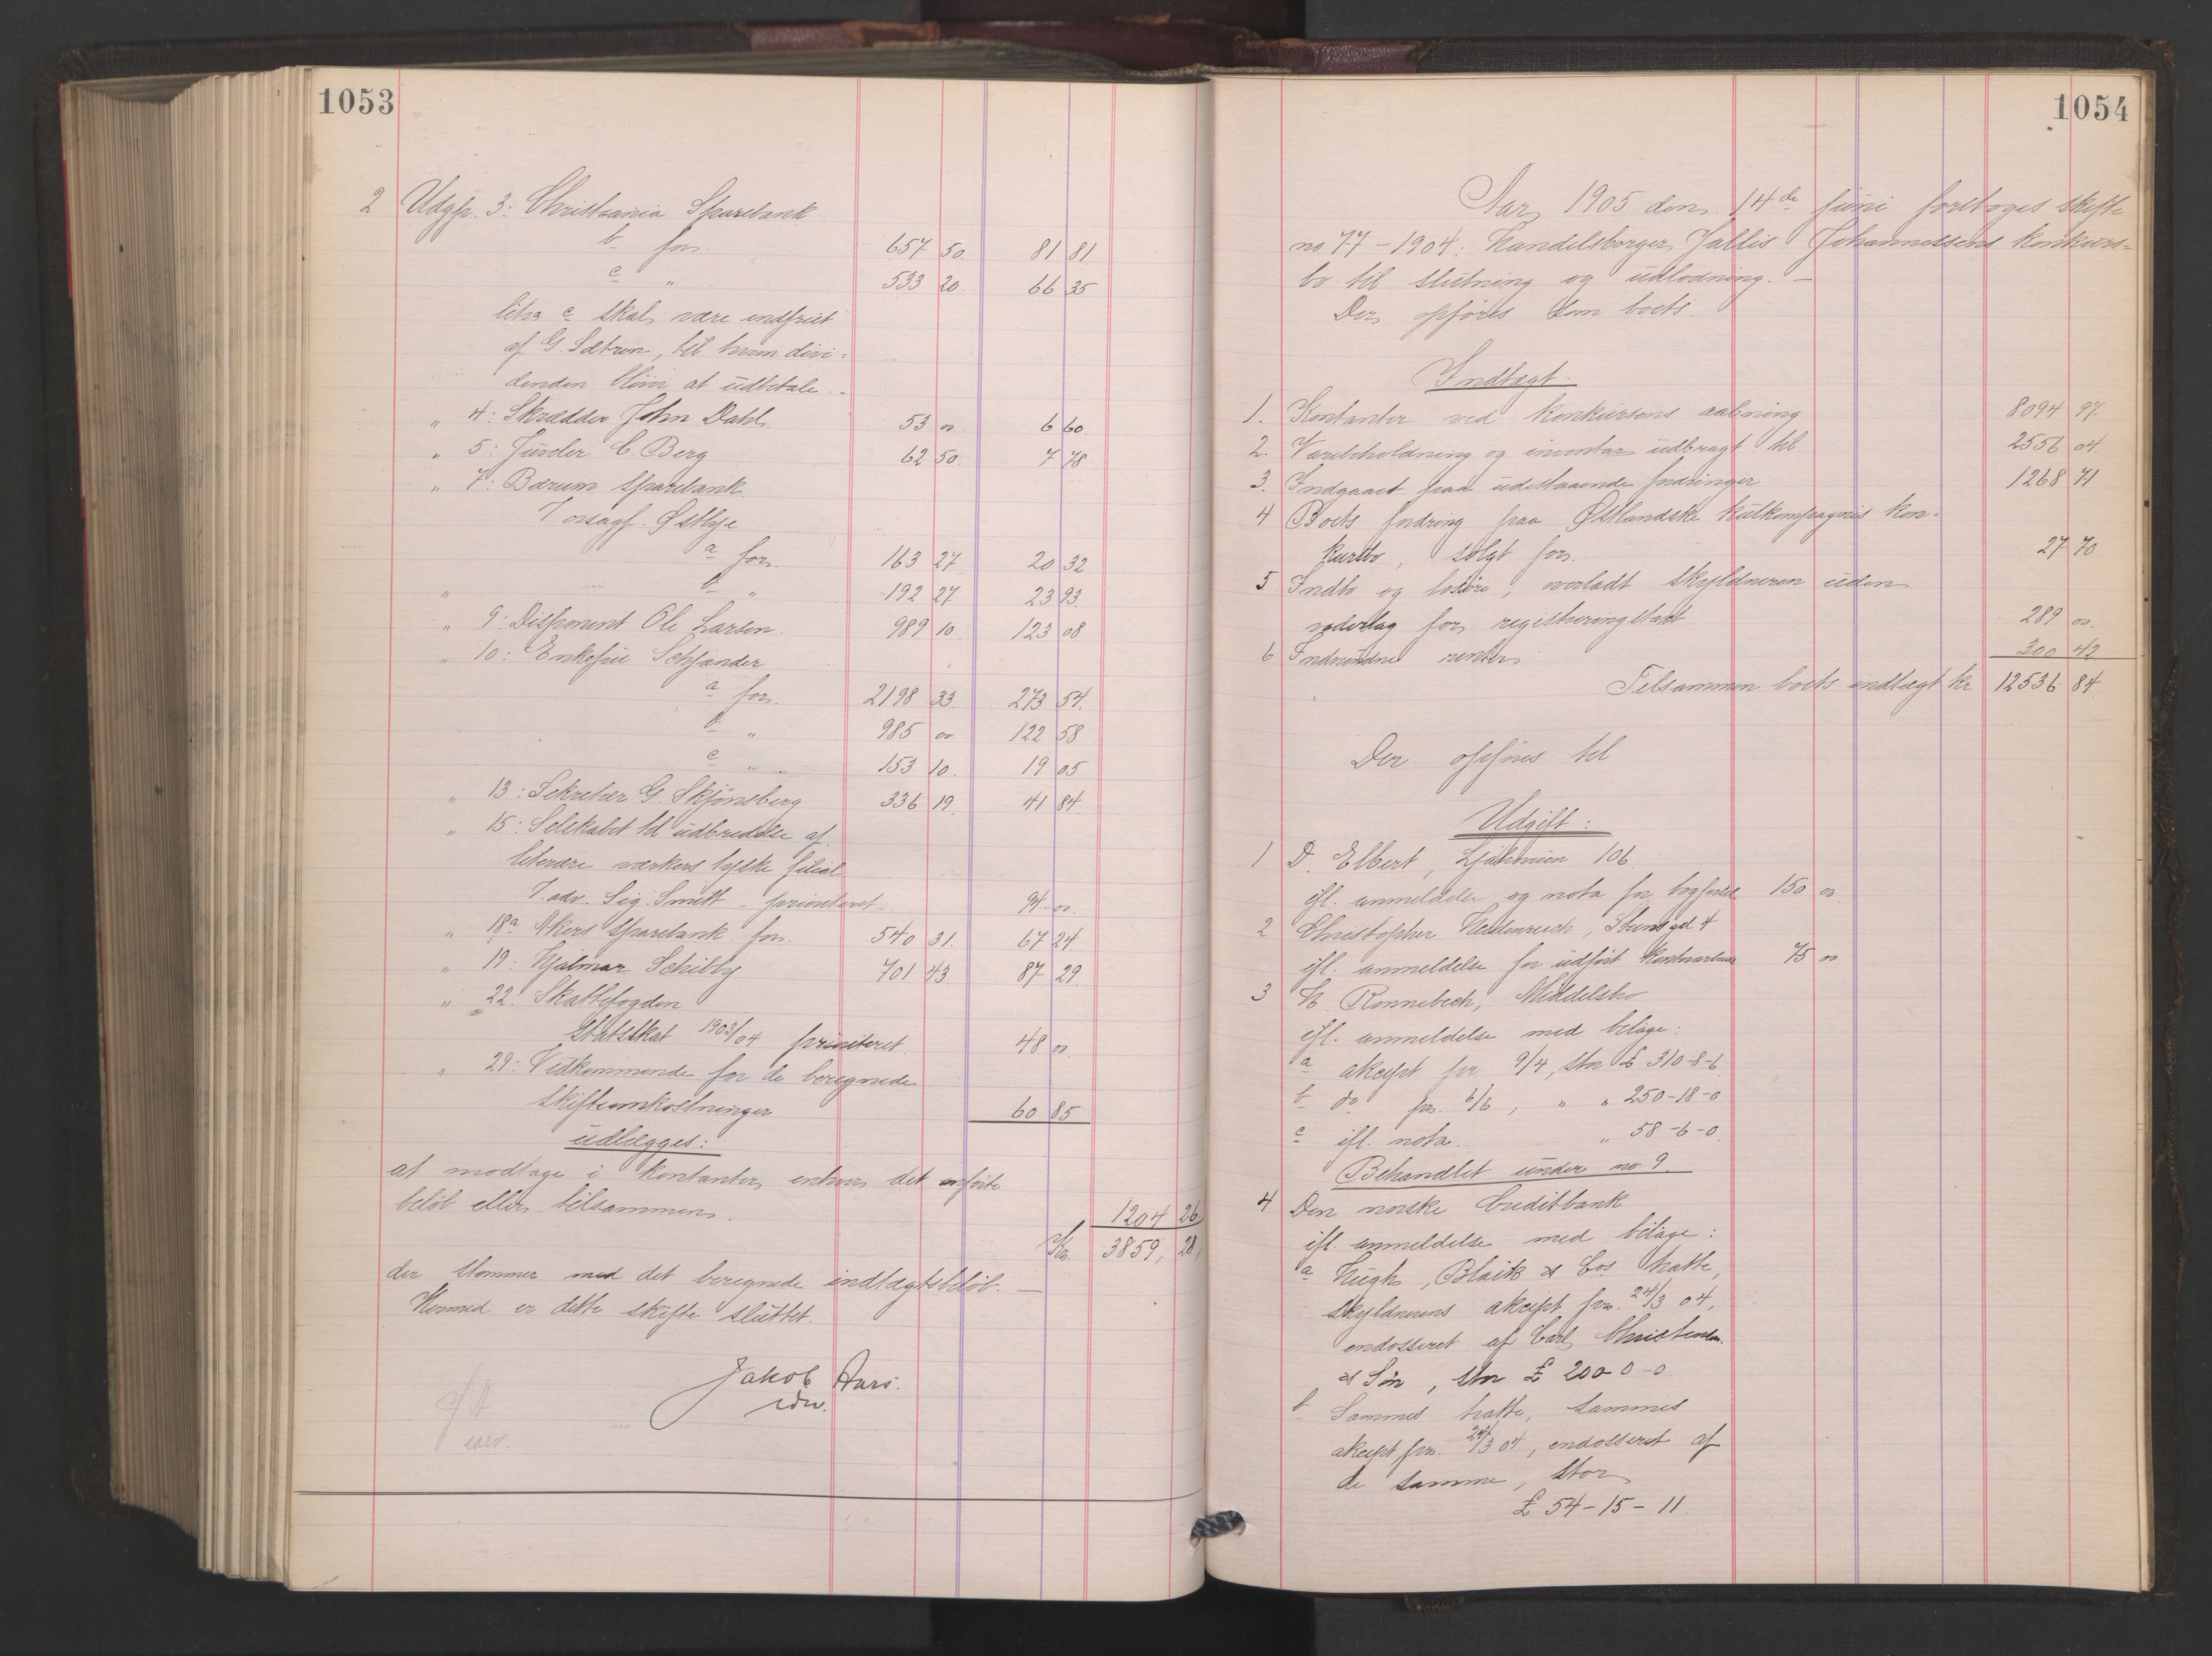 1053
2 Udgp. 3: Christiania Sparebank
b for. 657 50. 81 81
c " 533 20. 66 35
litra c skal være indfriet
af G. Sætren, til hvem divi=
denden bliver at udbetale.
" 4: Skrædder John Dahl. 53 00 6 60.
" 5: Juveler C. Berg 62 50. 7 78
" 7: Bærum Sparebank.
T. orsagf. Østbye
a for. 163 27 20 32
" b " 192 27 23 93.
" 9: Disponent Ole Larsen. 989 10. 123 08
" 10: Enkefru Schjander
a for. 2198 33. 273 54.
b " 985 00. 122 58
c " " 153 10. 19 05
" 13: Sekretær G. Skjønsberg 336 19. 41 84.
" 15: Selskabet til udbredelse af
literære værkers tyske filial
T. adv. Sig. Smitt - prioriteret - 94 00.
" 18a Akers Sparebank for. 540 31. 67 24.
" 19: Hjalmar Schibby 701 43. 87 29.
" 22: Skattefogden
Statsskat 1903/04 prioriteret. 48 00.
" 29: Vedkommende for de beregnede
skifteomkostninger 60 85
udlægges:
at modtage i kontanter enhver det anførte
beløb eller tilsammen. 1204 26
Kr. 3859, 28,
der stemmer med det beregnede indtægtsbeløb. —
Hermed er dette skifte sluttet.
Jakob Aars.
1054
Aar 1905 den 14de juni foretoges skifte
no 77 - 1904: Handelsborger Jallis Johannessens konkurs=
bo til slutning og udlodning. —
Der opføres som boets.
Indtægt.
1. Kontanter ved konkursens aabning 8094 97.
2. Varebeholdning og inventar udbragt til 2556 04.
3. Indgaaet paa udestaaende fordringer 1268 71
4 Boets fordring paa Østlandske kulkompagnis kon=
kursbo, solgt for. 27 70
5 Indbo og løsøre, overladt skyldneren uden
vederlag for registreringstaxt 289 00.
6 Indvundne renter 300 42
Tilsammen boets indtægt kr 12536 84.
Der opføres til
Udgift:
1 D. Elbert, Ljabroveien 106
ifl. anmeldelse og nota for bogførsel 150 00.
2 Christopher Heidenreich, Stensgd 4
ifl. anmeldelse for udført kontorarbeide 75 00
3 H. Ronnebeck, Middelsbro
ifl. anmeldelse med bilage:
a akcept pr 9/4, stor £ 310-8-6
b do pr. 6/6, " " 250-18-0
c ifl. nota. " 58-6-0.
Behandlet under no 9.
4 Den norske Creditbank
ifl. anmeldelse med bilage:
a Hugh, Blaik & Cos tratte,
skyldnerens akcept pr. 24/3 04,
endosseret af Carl Christensen
& Søn, stor £ 200-0-0.
b Sammes tratte, sammes
akcept pr. 24/3 04, endosseret af
de samme, stor
£ 54-15-11.